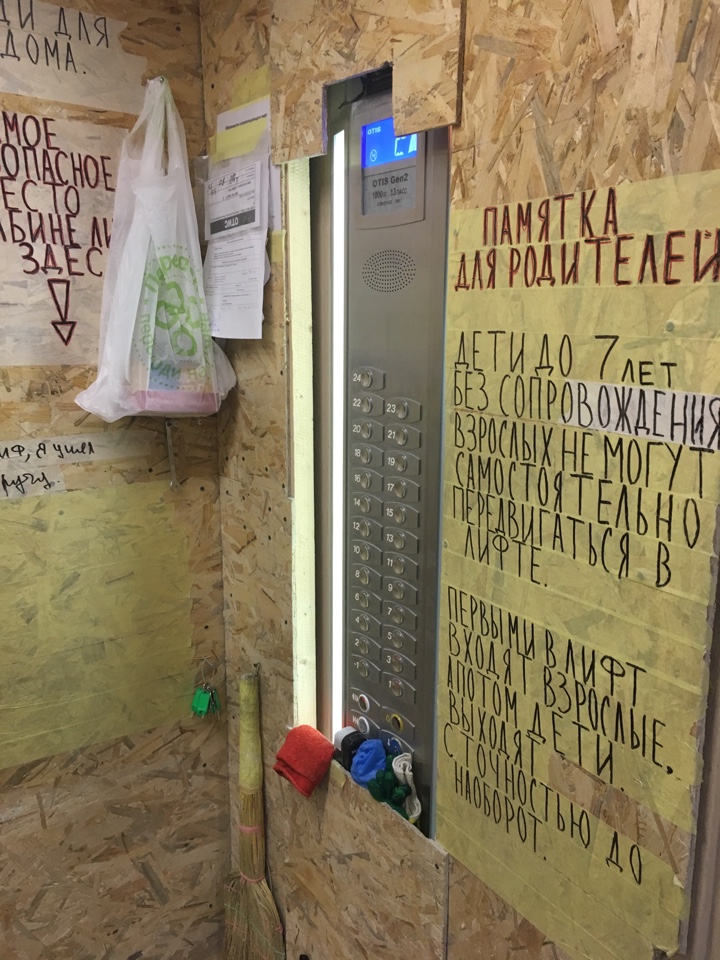 ДИ ДЛЯ
ДОМА.
МОЕ
ОПАСНОЕ
ЕСТО
АБИНЕ ЛИ
ЗДЕС
ИФ, Я УШЛА
OTIS
OTIS
OTIS Gen2
24
22
23
20
21
18
19
16
17
14
15
12
13
10
11
8
9
6
7
4
5
2
3
-1
1
ПАМЯТКА
ДЛЯ РОДИТЕЛЕЙ
ДЕТИ ДО 7 ЛЕТ
БЕЗ СОПРОВОЖДЕНИЯ
ВЗРОСЛЫХ НЕ МОГУТ
САМОСТОЯТЕЛЬНО
ПЕРЕДВИГАТЬСЯ В
ЛИФТЕ.
ПЕРВЫМИ В ЛИФТ
ВХОДЯТ ВЗРОСЛЫЕ,
А ПОТОМ ДЕТИ.
ВЫХОДЯТ
С ТОЧНОСТЬЮ ДО
НАОБОРОТ.